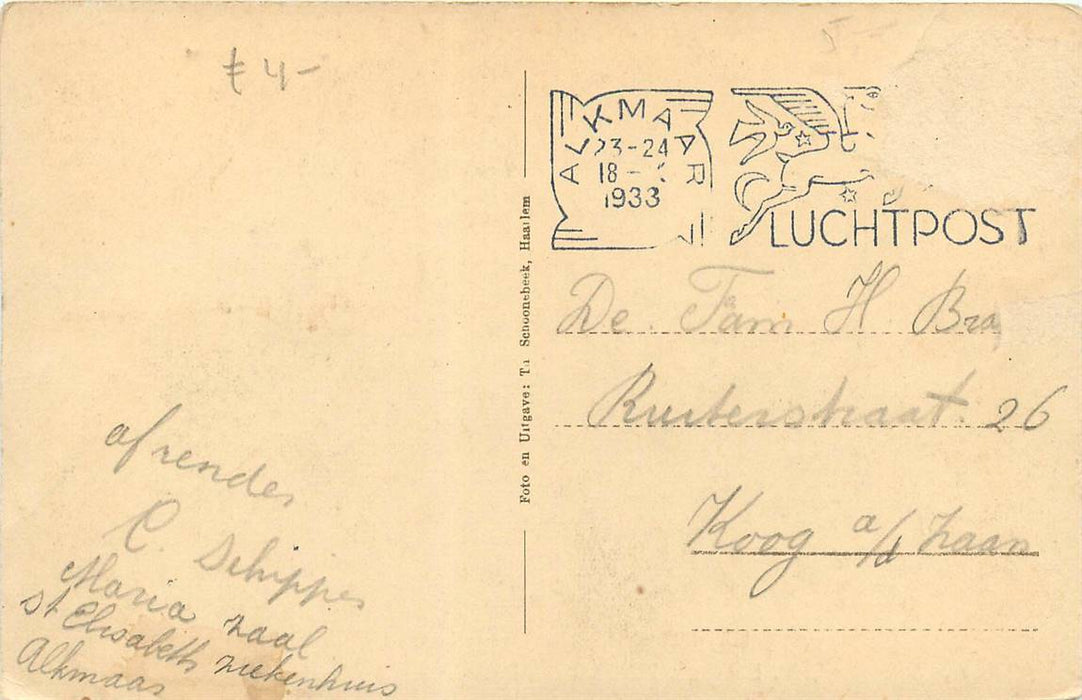 ₤ 4-
5-
ALKMAAR
23-24
18 -
1933
LUCHTPOST
Foto en Uitgave: Th Schoonebeek, Haarlem
De Fam H Bra
Ruiterstraat 26
Koog a/d Zaan
afzender
C. Schipper
Maria zaal
St Elisabeth ziekenhuis
Alkmaar